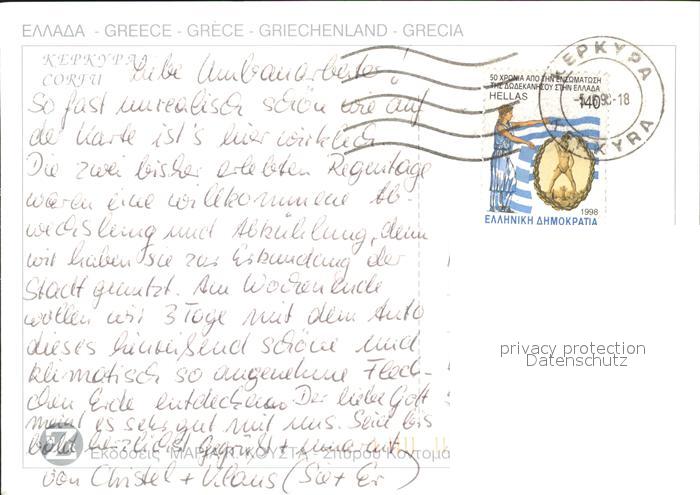 ΕΛΛΑΔΑ - GREECE - GRÈCE - GRIECHENLAND - GRECIA
ΚΕΡΚΥΡΑ
CORFU
Liebe Umbauarbeiter!
So fast unrealistisch schön wie auf
der Karte ist's hier wirklich
Die zwei bisher erlebten Regentage
waren eine willkommene Ab-
wechslung und Abkühlung, denn
wir haben sie zur Erkundung der
Stadt genutzt. Am Wochenende
wollen wir 3 Tage mit dem Auto
dieses hinreißend schöne und
klimatisch so angenehme Fleck-
chen Erde entdecken. Der liebe Gott
meint es sehr gut mit uns. Seid bis
bald herzlichst gegrüßt + umarmt
von Christel + Klaus (Sie + Er)
50 ΧΡΟΝΙΑ ΑΠΟ ΤΗΝ ΕΝΣΩΜΑΤΩΣΗ
ΤΗΣ ΔΩΔΕΚΑΝΗΣΟΥ ΣΤΗΝ ΕΛΛΑΔΑ
HELLAS
140
1998
ΕΛΛΗΝΙΚΗ ΔΗΜΟΚΡΑΤΙΑ
ΚΕΡΚΥΡΑ
98-18
KYRA
privacy protection
Datenschutz
Εκδόσεις ΜΑΡΙΑ
Σπύρου Κοντομά